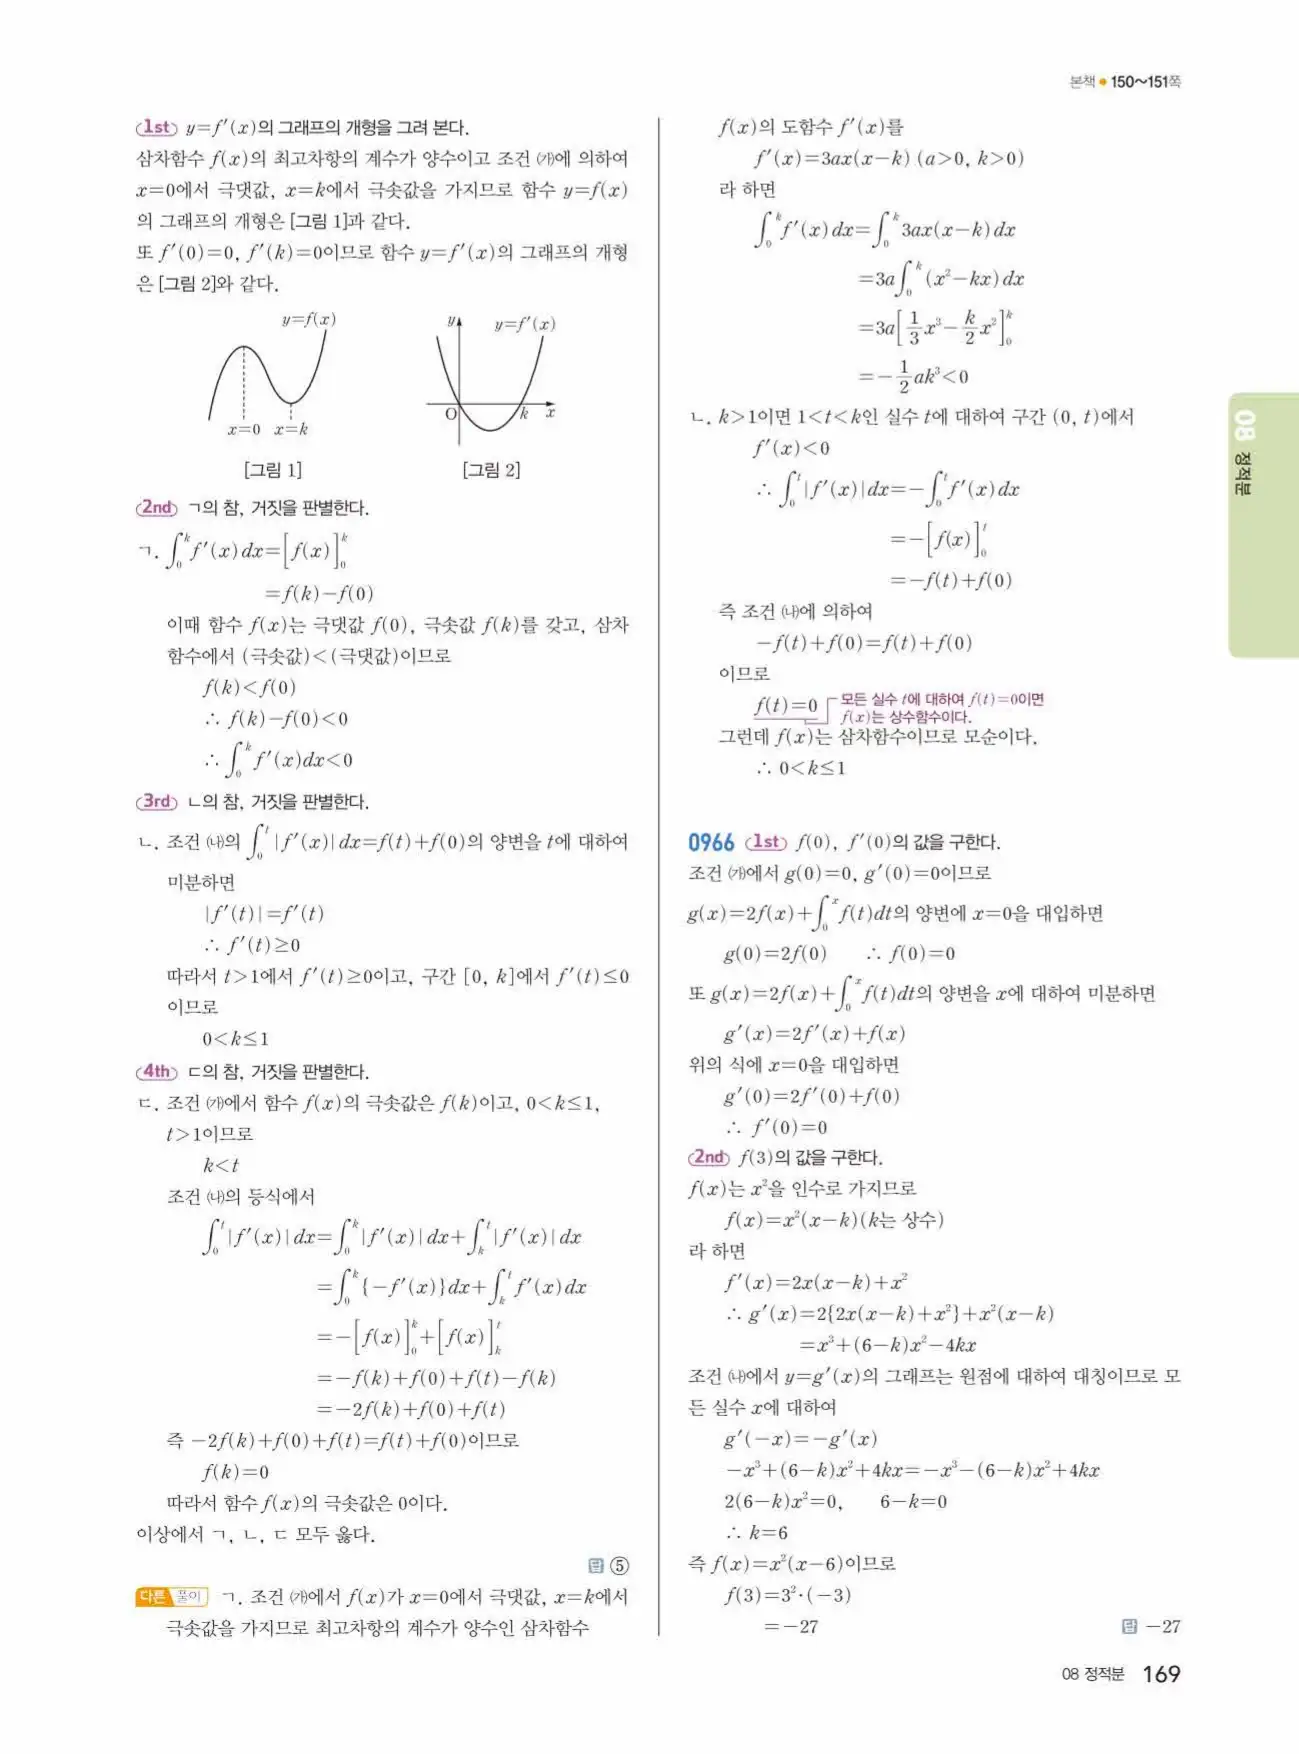 본책 150~151쪽
1st y=f′(x)의 그래프의 개형을 그려 본다.
삼차함수 f(x)의 최고차항의 계수가 양수이고 조건 ㈎에 의하여
x=0에서 극댓값, x=k에서 극솟값을 가지므로 함수 y=f(x)
의 그래프의 개형은 [그림 1]과 같다.
또 f′(0)=0, f′(k)=0이므로 함수 y=f′(x)의 그래프의 개형
은 [그림 2]와 같다.
y=f(x)
x=0 x=k
[그림 1]
y y=f′(x)
O k x
[그림 2]
2nd ㄱ의 참, 거짓을 판별한다.
ㄱ. ∫₀ᵏ f′(x)dx=[f(x)]₀ᵏ
=f(k)-f(0)
이때 함수 f(x)는 극댓값 f(0), 극솟값 f(k)를 갖고, 삼차
함수에서 (극솟값)<(극댓값)이므로
f(k)<f(0)
∴ f(k)-f(0)<0
∴ ∫₀ᵏ f′(x)dx<0
3rd ㄴ의 참, 거짓을 판별한다.
ㄴ. 조건 ㈏의 ∫₀ᵗ |f′(x)|dx=f(t)+f(0)의 양변을 t에 대하여
미분하면
|f′(t)|=f′(t)
∴ f′(t)≥0
따라서 t>1에서 f′(t)≥0이고, 구간 [0, k]에서 f′(t)≤0
이므로
0<k≤1
4th ㄷ의 참, 거짓을 판별한다.
ㄷ. 조건 ㈎에서 함수 f(x)의 극솟값은 f(k)이고, 0<k≤1,
t>1이므로
k<t
조건 ㈏의 등식에서
∫₀ᵗ |f′(x)|dx=∫₀ᵏ |f′(x)|dx+∫ₖᵗ |f′(x)|dx
=∫₀ᵏ {-f′(x)}dx+∫ₖᵗ f′(x)dx
=-[f(x)]₀ᵏ+[f(x)]ₖᵗ
=-f(k)+f(0)+f(t)-f(k)
=-2f(k)+f(0)+f(t)
즉 -2f(k)+f(0)+f(t)=f(t)+f(0)이므로
f(k)=0
따라서 함수 f(x)의 극솟값은 0이다.
이상에서 ㄱ, ㄴ, ㄷ 모두 옳다.
답 ⑤
다른 풀이 ㄱ. 조건 ㈎에서 f(x)가 x=0에서 극댓값, x=k에서
극솟값을 가지므로 최고차항의 계수가 양수인 삼차함수
f(x)의 도함수 f′(x)를
f′(x)=3ax(x-k) (a>0, k>0)
라 하면
∫₀ᵏ f′(x)dx=∫₀ᵏ 3ax(x-k)dx
=3a∫₀ᵏ (x²-kx)dx
=3a[1/3 x³-k/2 x²]₀ᵏ
=-1/2 ak³<0
ㄴ. k>1이면 1<t<k인 실수 t에 대하여 구간 (0, t)에서
f′(x)<0
∴ ∫₀ᵗ |f′(x)|dx=-∫₀ᵗ f′(x)dx
=-[f(x)]₀ᵗ
=-f(t)+f(0)
즉 조건 ㈏에 의하여
-f(t)+f(0)=f(t)+f(0)
이므로
f(t)=0 모든 실수 t에 대하여 f(t)=0이면
f(x)는 상수함수이다.
그런데 f(x)는 삼차함수이므로 모순이다.
∴ 0<k≤1
0966 1st f(0), f′(0)의 값을 구한다.
조건 ㈎에서 g(0)=0, g′(0)=0이므로
g(x)=2f(x)+∫₀ˣ f(t)dt의 양변에 x=0을 대입하면
g(0)=2f(0) ∴ f(0)=0
또 g(x)=2f(x)+∫₀ˣ f(t)dt의 양변을 x에 대하여 미분하면
g′(x)=2f′(x)+f(x)
위의 식에 x=0을 대입하면
g′(0)=2f′(0)+f(0)
∴ f′(0)=0
2nd f(3)의 값을 구한다.
f(x)는 x²을 인수로 가지므로
f(x)=x²(x-k)(k는 상수)
라 하면
f′(x)=2x(x-k)+x²
∴ g′(x)=2{2x(x-k)+x²}+x²(x-k)
=x³+(6-k)x²-4kx
조건 ㈏에서 y=g′(x)의 그래프는 원점에 대하여 대칭이므로 모
든 실수 x에 대하여
g′(-x)=-g′(x)
-x³+(6-k)x²+4kx=-x³-(6-k)x²+4kx
2(6-k)x²=0, 6-k=0
∴ k=6
즉 f(x)=x²(x-6)이므로
f(3)=3²·(-3)
=-27
답 -27
08 정적분
08 정적분 169